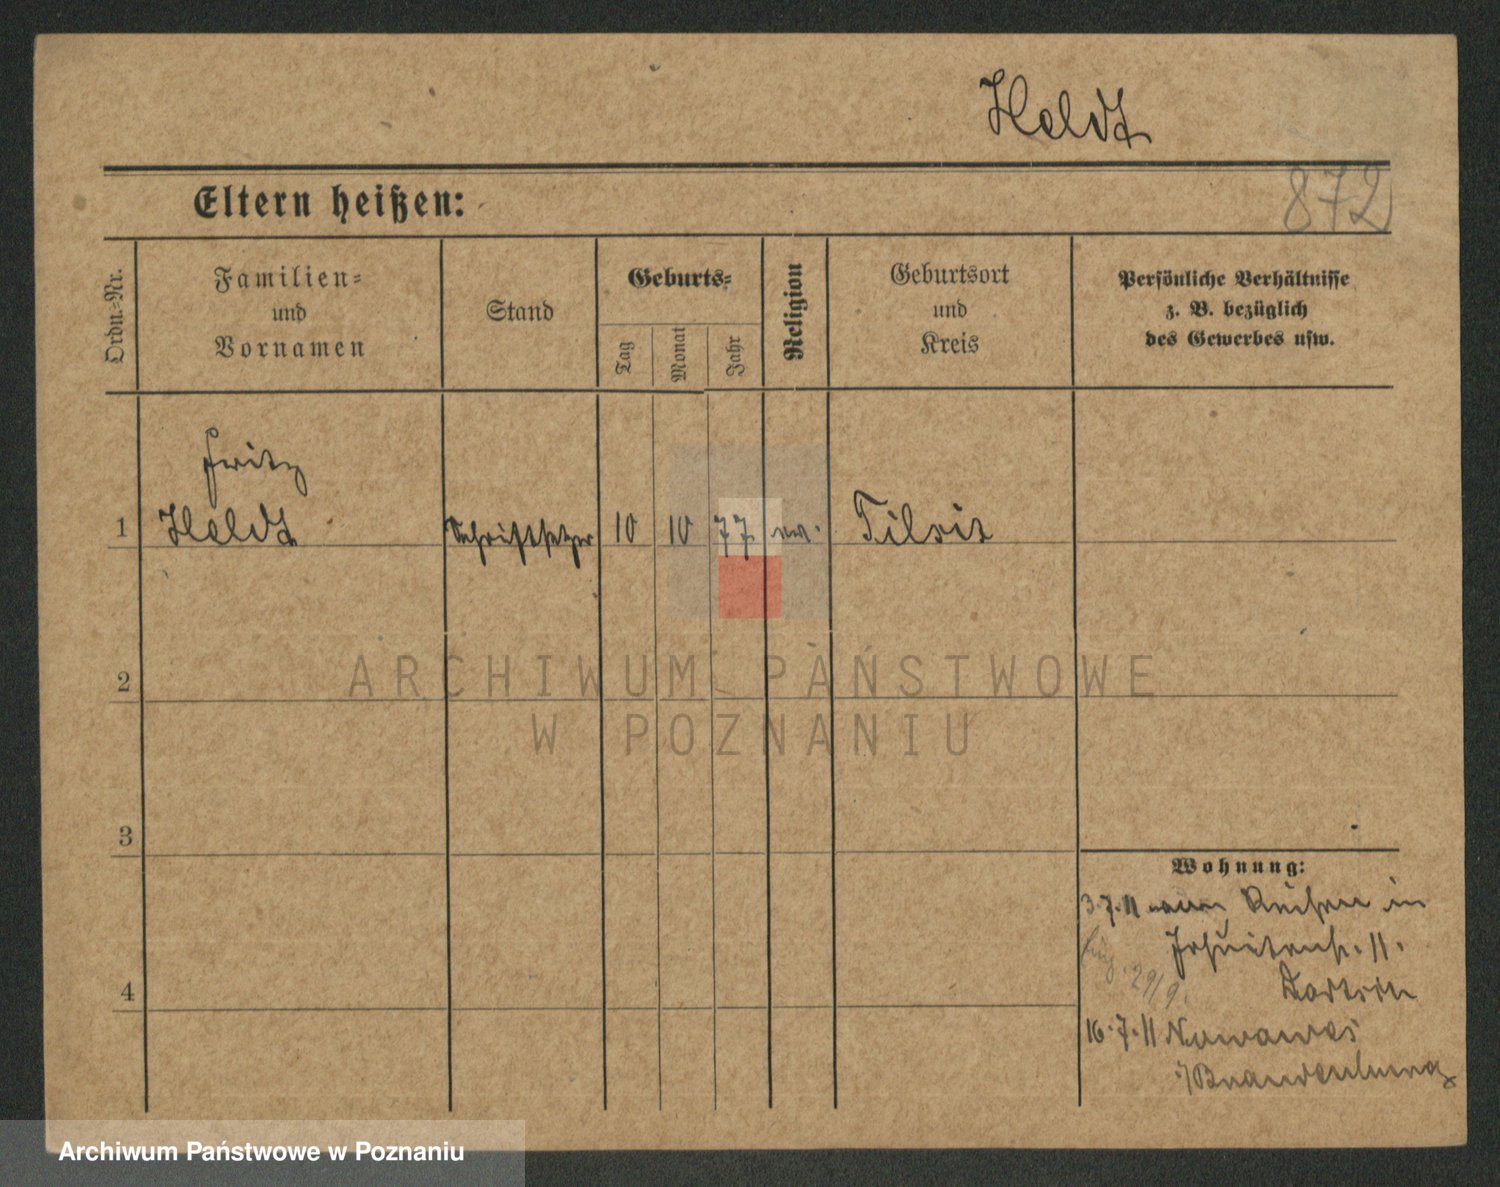 Heldt
Eltern heißen:
872
Ordn.-Nr.
Familien-
und
Vornamen
Stand
Geburts-
Tag
Monat
Jahr
Religion
Geburtsort
und
Kreis
Persönliche Verhältnisse
z. B. bezüglich
des Gewerbes usw.
Fritz
1 Heldt Schriftsetzer 10 10 77 ev. Tilsit
2
ARCHIWUM PAŃSTWOWE
W POZNANIU
3
Wohnung:
3.7.11 von in
Jesuitenstr. 11.
29/9.
4
16.7.11 Nowawes
/Brandenburg
Archiwum Państwowe w Poznaniu